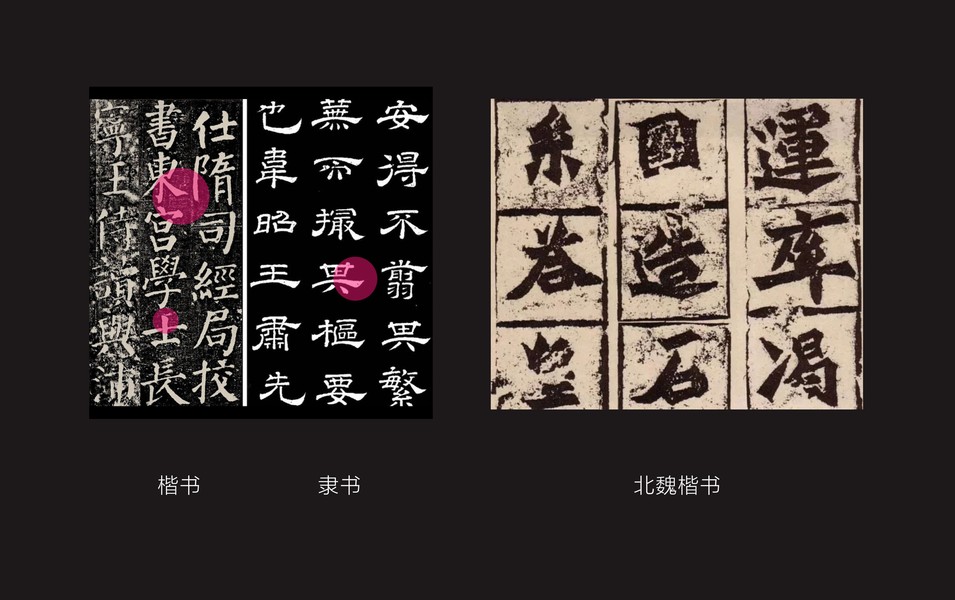 仕隋司經局挍
書東宮學士長
寧王侍讀與沛
安得不翦其繁
蕪而撮其樞要
也韋昭王肅先
運率渴
國造石
系荅皇
楷书
隶书
北魏楷书